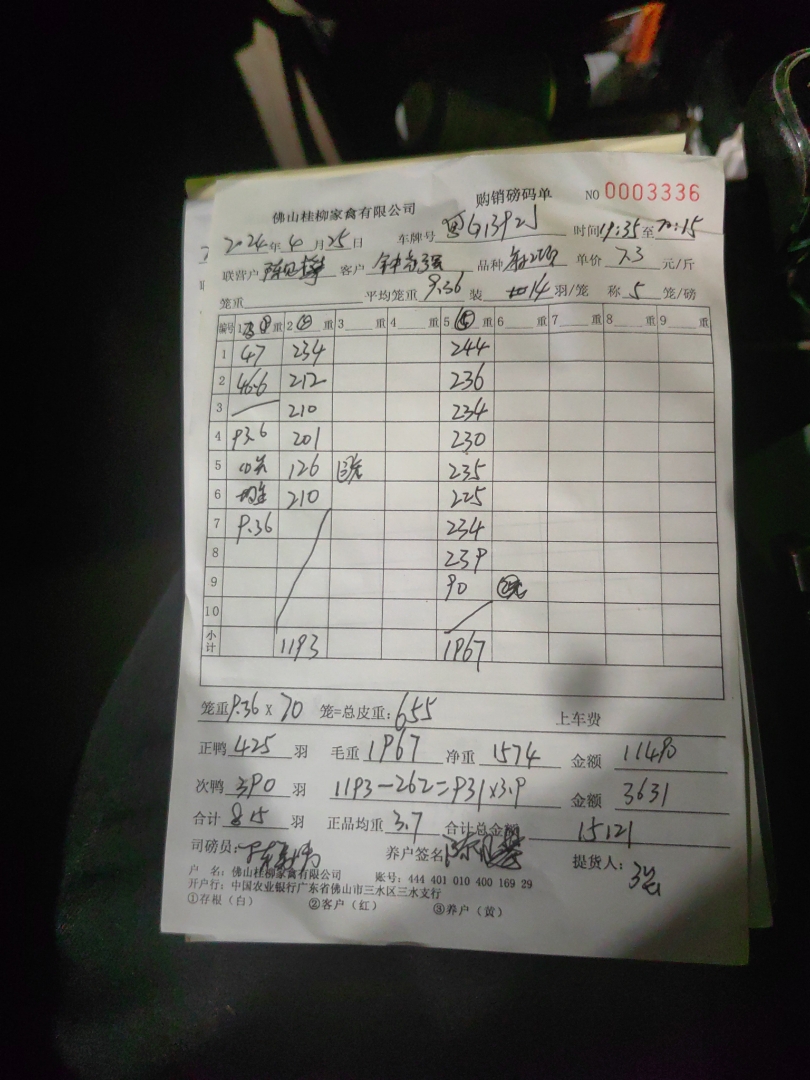 佛山桂柳家禽有限公司 购销磅码单 NO 0003336
2024年4月25日 车牌号 时间19:35至20:15
联营户 客户 品种 单价 7.3 元/斤
笼重 平均笼重 9.36 装 14 羽/笼 称 5 笼/磅
编号 1 重 2 重 3 重 4 重 5 重 6 重 7 重 8 重 9 重
1 47 234 244
2 46.6 212 236
3 210 234
4 93.6 201 230
5 126 235
6 210 225
7 9.36 234
8 239
9 90
10
小计 1193 1967
笼重9.36 x 70 笼=总皮重:655 上车费
正鸭 425 羽 毛重 1967 净重 1574 金额 11490
次鸭 390 羽 1193-262=931x3.9 金额 3631
合计 815 羽 正品均重 3.7 合计总金额 15121
司磅员: 养户签名 提货人:
户 名: 佛山桂柳家禽有限公司 账号: 444 401 010 400 169 29
开户行: 中国农业银行广东省佛山市三水区三水支行
①存根(白) ②客户(红) ③养户(黄)